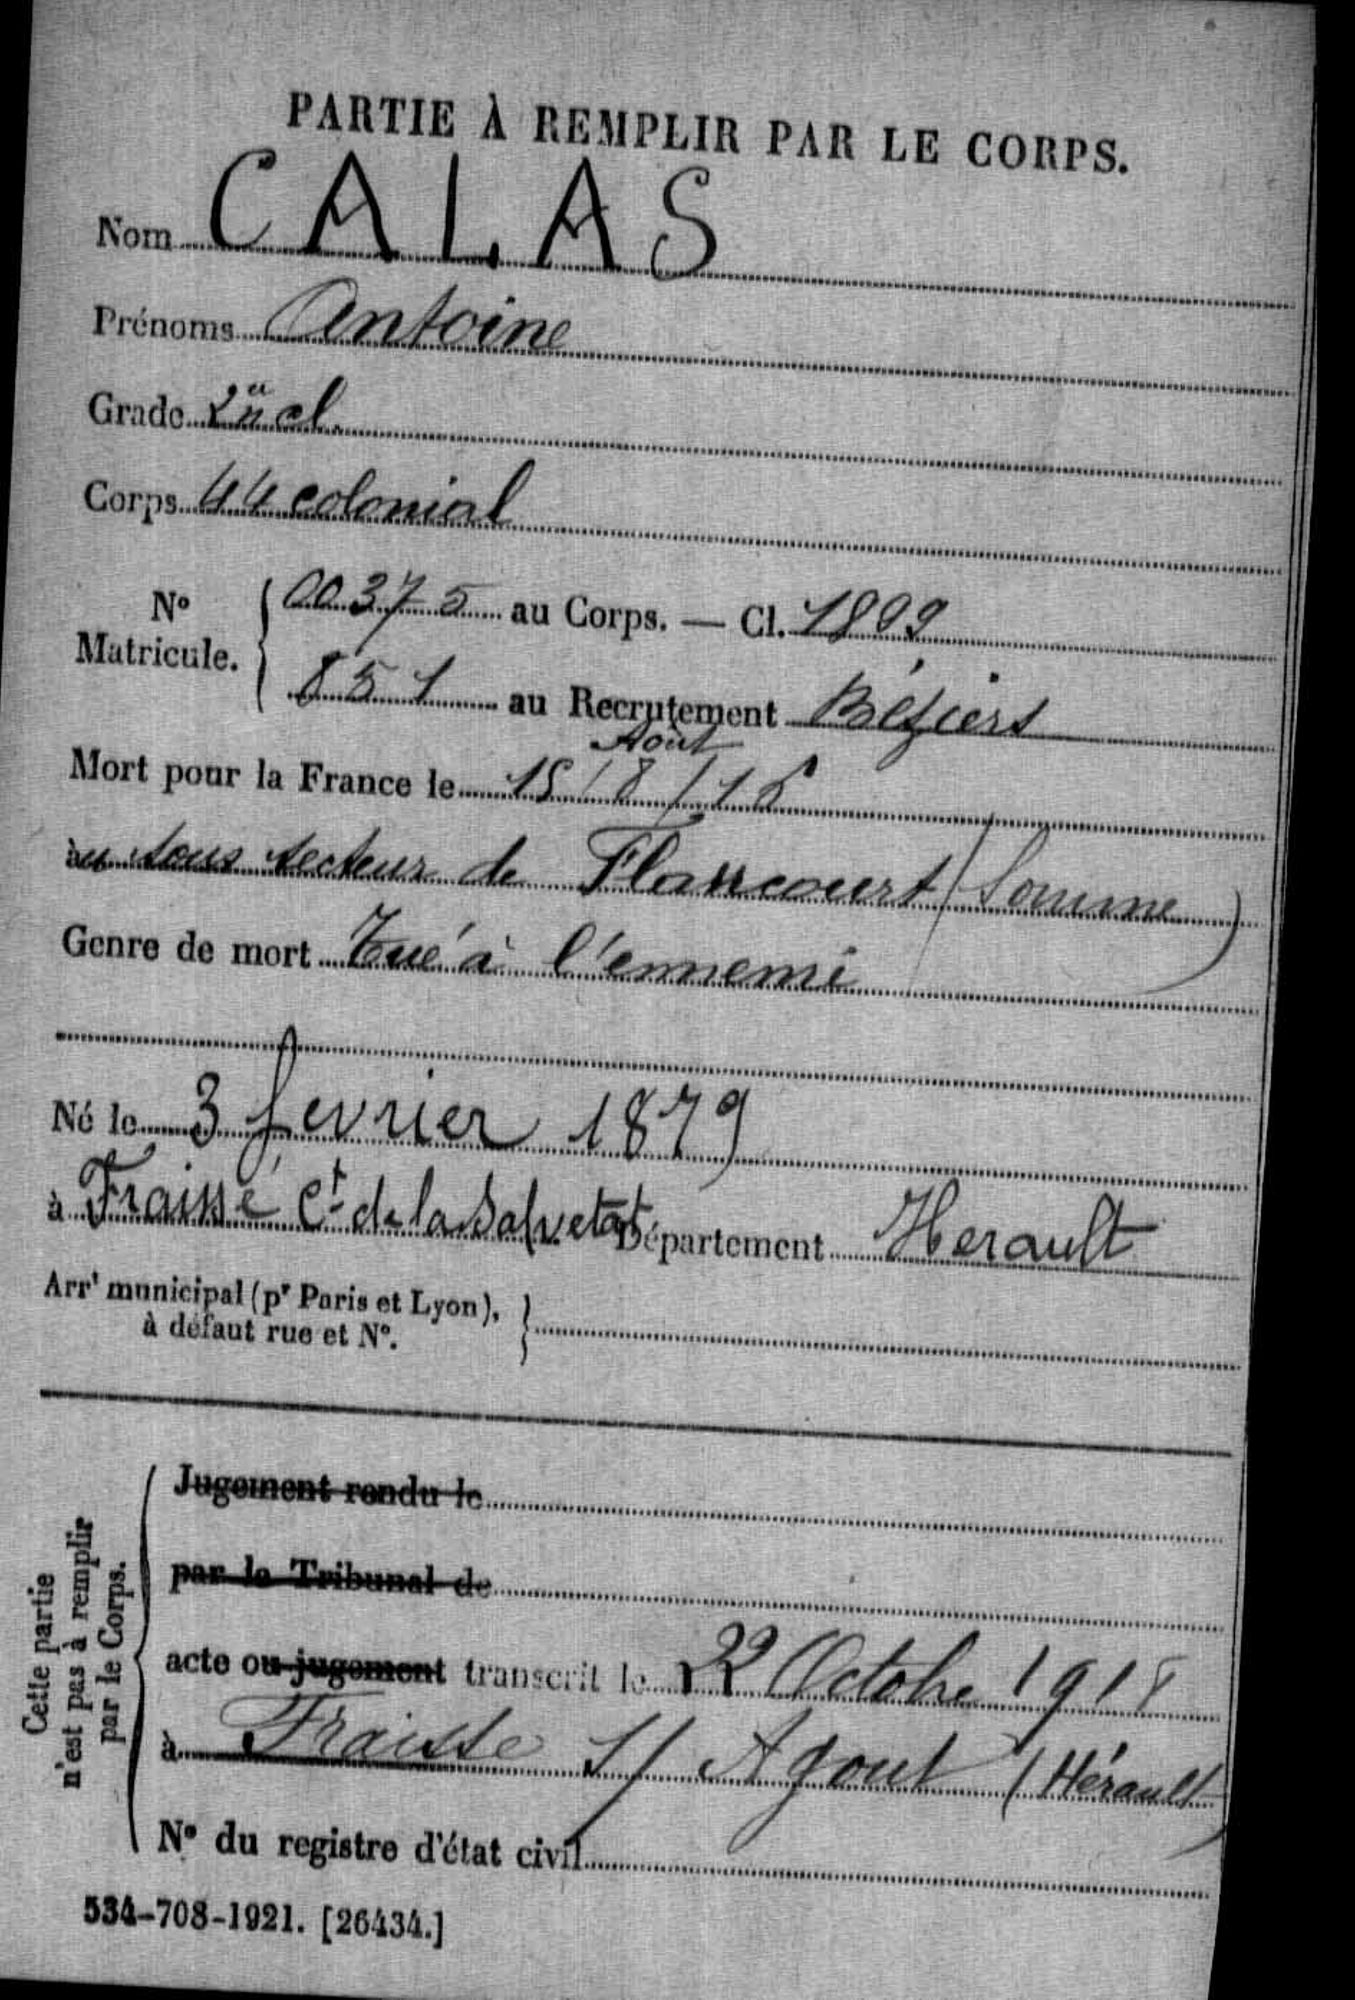 PARTIE À REMPLIR PAR LE CORPS.
Nom CALAS
Prénoms Antoine
Grade 2è cl.
Corps 44 colonial
N° Matricule. { 00375 au Corps. — Cl. 1899
851 au Recrutement Béziers
Août
Mort pour la France le 15/8/16
au sous secteur de Flaucourt (Somme)
Genre de mort Tué à l'ennemi
Né le 3 fevrier 1879
à Fraisse Ct de la Salvetat Département Herault
Arrt municipal (pr Paris et Lyon),
à défaut rue et N°.
Cette partie
n'est pas à remplir
par le Corps.
Jugement rendu le
par le Tribunal de
acte ou jugement transcrit le 22 Octobre 1918
à Fraisse s/ Agout (Hérault)
N° du registre d'état civil
534-708-1921. [26434.]